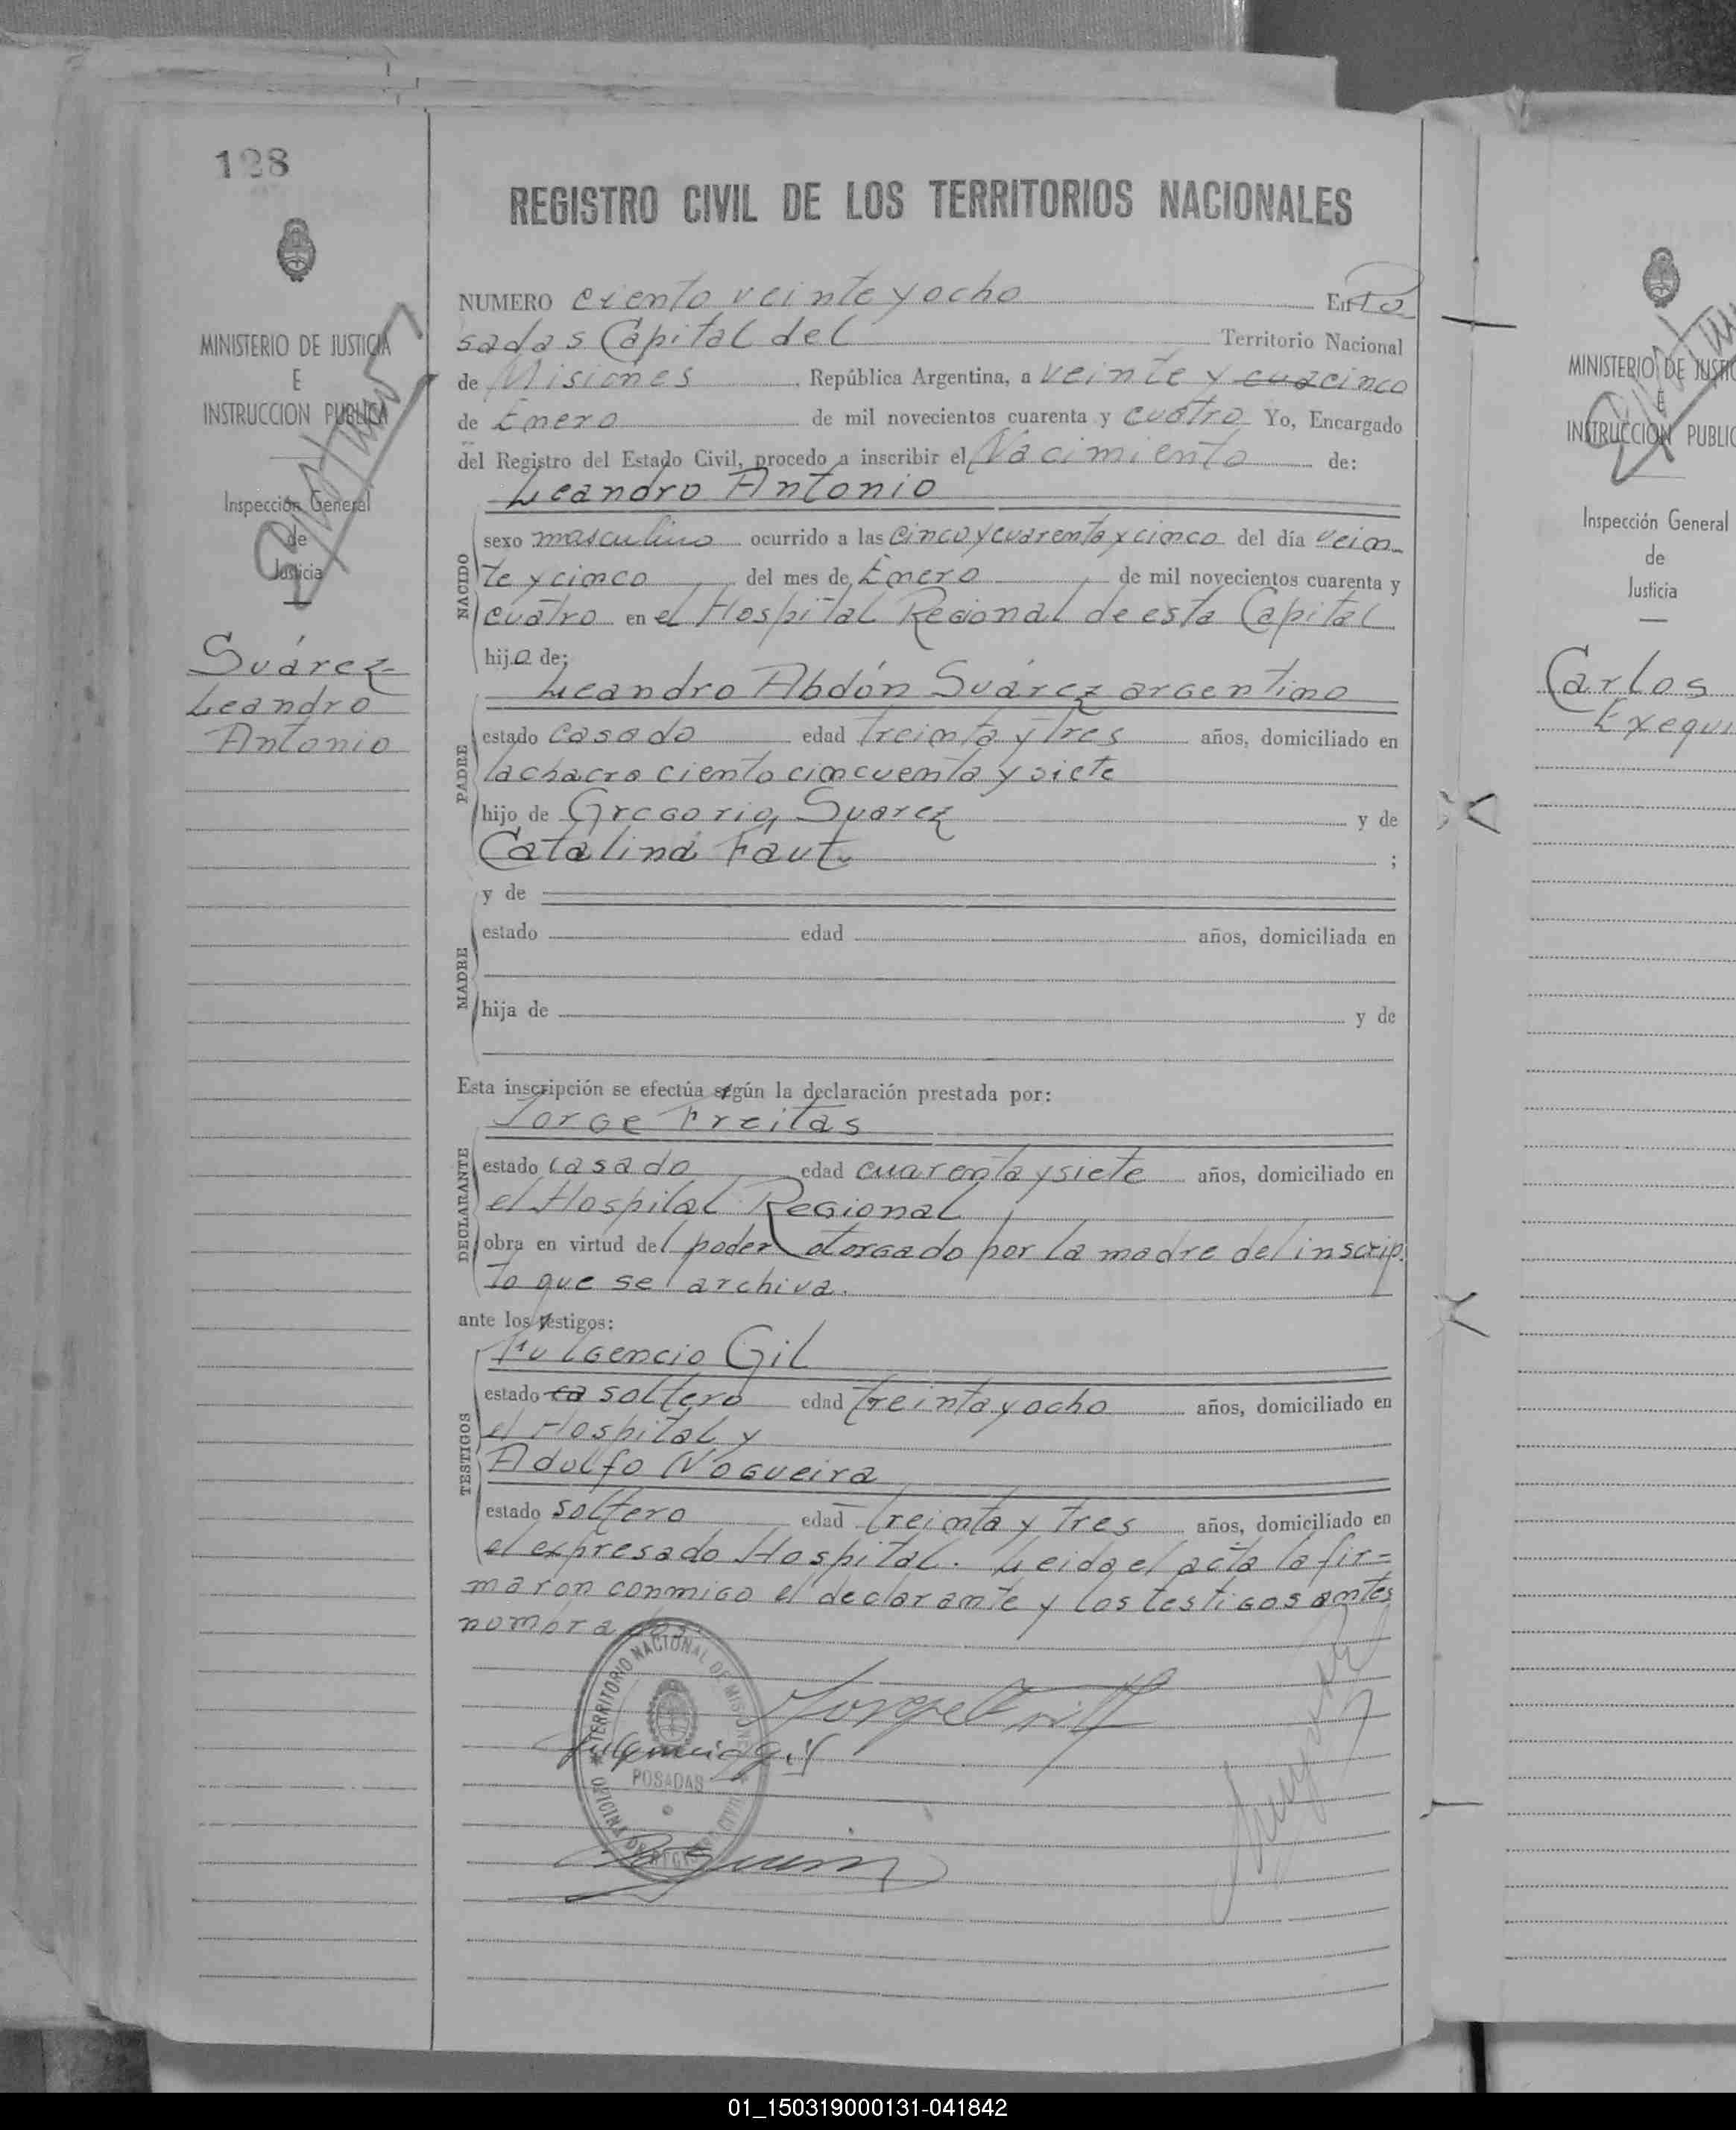 128
MINISTERIO DE JUSTICIA
E
INSTRUCCION PUBLICA
Inspección General
de
Justicia
Suárez
Leandro
Antonio
REGISTRO CIVIL DE LOS TERRITORIOS NACIONALES
NUMERO ciento veinte y ocho En Po
sadas Capital del Territorio Nacional
de Misiones, República Argentina, a veinte y cinco
de Enero de mil novecientos cuarenta y cuatro Yo, Encargado
del Registro del Estado Civil, procedo a inscribir el Nacimiento de:
Leandro Antonio
NACIDO
sexo masculino ocurrido a las cinco y cuarenta y cinco del día vein
te y cinco del mes de Enero de mil novecientos cuarenta y
cuatro en el Hospital Regional de esta Capital
hijo de:
PADRE
Leandro Abdón Suárez argentino
estado casado edad treinta y tres años, domiciliado en
la chacra ciento cincuenta y siete
hijo de Gregorio Suarez y de
Catalina Faut ;
MADRE
y de
estado edad años, domiciliada en
hija de y de
Esta inscripción se efectúa según la declaración prestada por:
DECLARANTE
Jorge Freitas
estado casado edad cuarenta y siete años, domiciliado en
el Hospital Regional
obra en virtud del poder otorgado por la madre del inscrip.
to que se archiva.
ante los testigos:
TESTIGOS
Fulgencio Gil
estado ca soltero edad treinta y ocho años, domiciliado en
el Hospital y
Adolfo Nogueira
estado soltero edad treinta y tres años, domiciliado en
el expresado Hospital. Leida el acta la fir=
maron conmigo el declarante y los testigos antes
nombrados.
TERRITORIO NACIONAL DE MISIONES
POSADAS
Fulgencio Gil
MINISTERIO DE JUSTIC
E
INSTRUCCION PUBLIC
Inspección General
de
Justicia
Carlos
Exequi
01_150319000131-041842